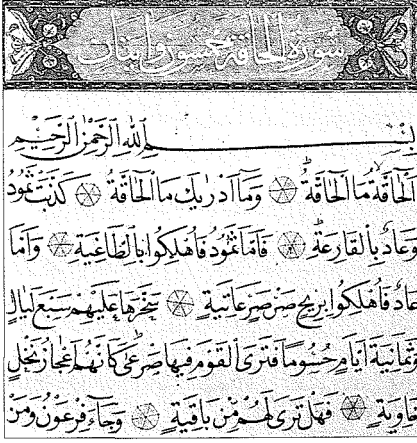 سورة الحاقة خمسون واثنتان
بسم الله الرحمن الرحيم
اَلْحَاقَّةُ مَا الْحَاقَّةُ وَمَا اَدْرٰيكَ مَا الْحَاقَّةُ كَذَّبَتْ ثَمُودُ
وَعَادٌ بِالْقَارِعَةِ فَاَمَّا ثَمُودُ فَاُهْلِكُوا بِالطَّاغِيَةِ وَاَمَّا
عَادٌ فَاُهْلِكُوا بِرِيحٍ صَرْصَرٍ عَاتِيَةٍ سَخَّرَهَا عَلَيْهِمْ سَبْعَ لَيَالٍ
وَثَمَانِيَةَ اَيَّامٍ حُسُومًا فَتَرَى الْقَوْمَ فِيهَا صَرْعٰى كَاَنَّهُمْ اَعْجَازُ نَخْلٍ
خَاوِيَةٍ فَهَلْ تَرٰى لَهُمْ مِنْ بَاقِيَةٍ وَجَاءَ فِرْعَوْنُ وَمَنْ